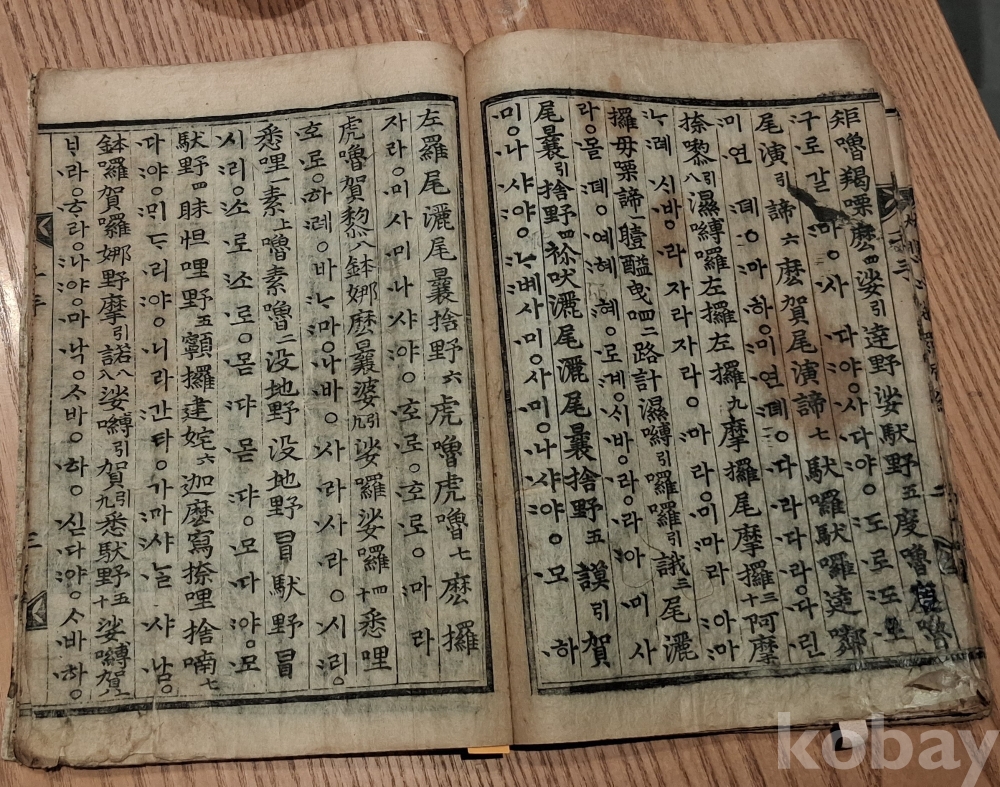 矩嚕羯㗚麽四娑引達野娑馱野五度嚕度嚕
구로갈 마ㅇ사 다야ㅇ사다야ㅇ도로도로
尾演引諦六麽賀尾演諦七馱囉馱囉達
미연 뎨ㅇ마하ㅇ미연뎨ㅇ다라다라ㅇ다린
捺嚟八引濕縛囉左攞左攞九摩攞尾摩攞十三阿摩
ᄂᆞ례 시바ㅇ라 자라자라ㅇ마 라ㅇ미마라 아마
攞母㗚諦一曀醯曳呬二四路計濕縛引囉引誐三尾灑
라ㅇ몰 뎨ㅇ예혜ㅇ혜ㅇ로계ㅇ시바ㅇ라ㅇ아 미사
尾曩引捨野四祢吠灑尾灑尾曩捨野五謨引賀
미ㅇ나 샤야ㅇᄂᆞ볘사미ㅇ사미ㅇ나샤야ㅇ모 하
左羅尾灑尾曩捨野六虎嚕虎嚕七麽攞
자라ㅇ미사미나샤야ㅇ호로ㅇ호로ㅇ마라
虎嚕賀黎八鉢娜麽曩婆引九娑囉娑囉十四悉哩
호로ㅇ하례ㅇ바ᄂᆞ마ㅇ나바ㅇ사라사라ㅇ시리ㅇ
悉哩一素上嚕素嚕二没地野没地野冒馱野冒
시리ㅇ소로소로ㅇ몯댜 몯댜ㅇ모다야ㅇ모
馱野四昧怛哩野五顊攞建姹六迦麽寫捺哩捨喃七
다야ㅇ미ᄃᆞ리야ㅇ니라간타ㅇ가마샤ᄂᆞᆯ샤남ㅇ
鉢囉賀囉娜野摩引諾八娑縛引賀引九悉馱野五十娑縛賀
ᄇᆞ라ㅇ하라ㅇ나야ㅇ마낙ㅇᄉᆞ바ㅇ하ㅇ싣다야ㅇᄉᆞ바하ㅇ
kobay